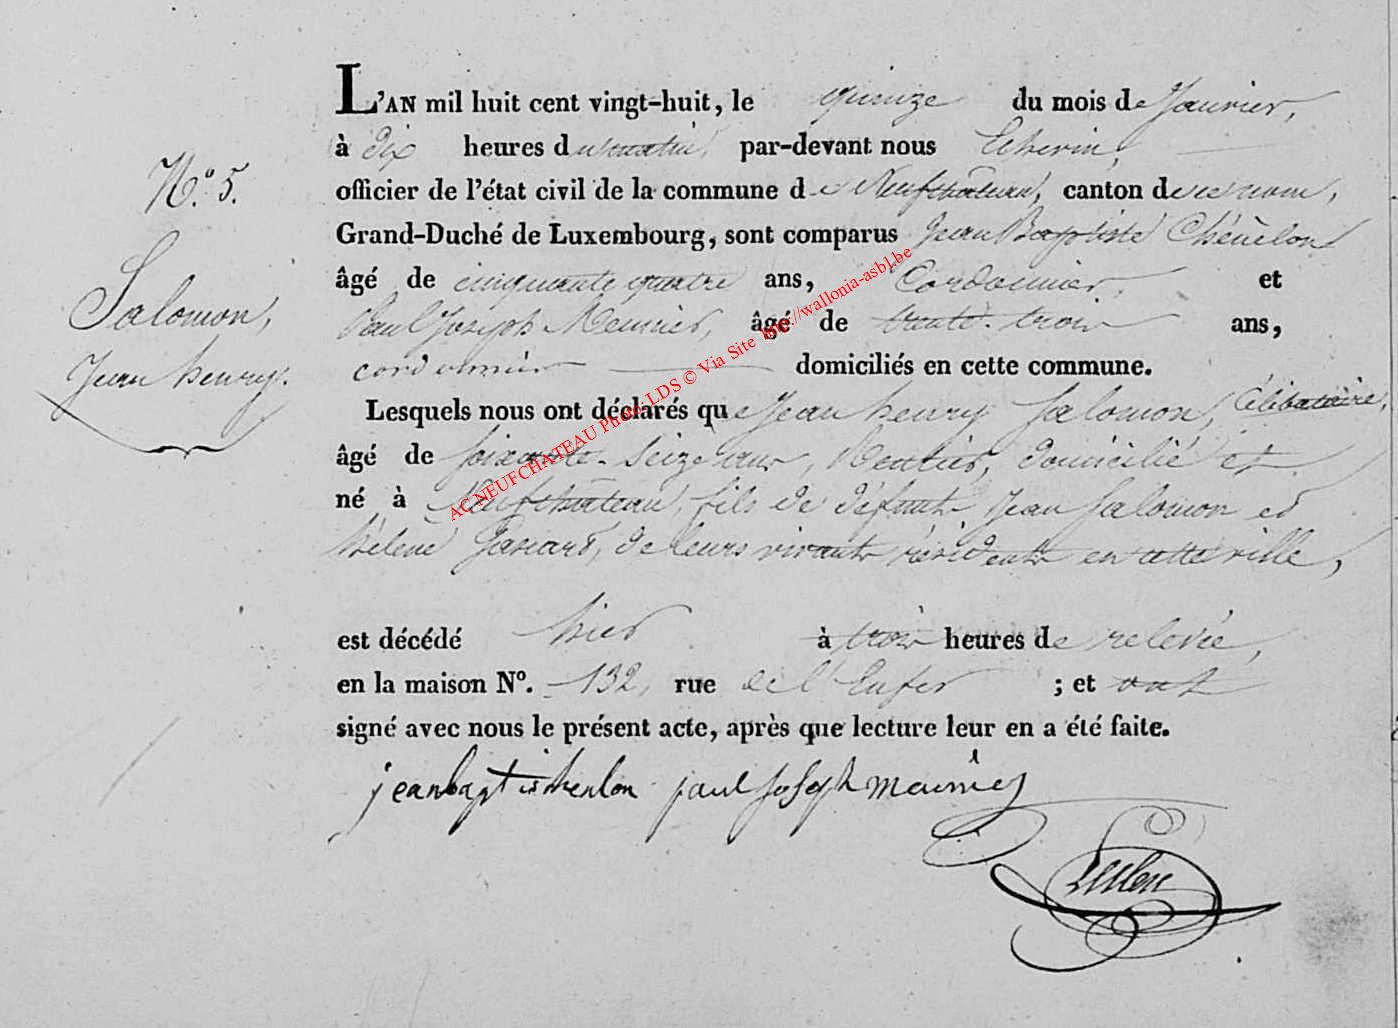 N.° 5.
Salomon,
Jean henry.
L'AN mil huit cent vingt-huit, le quinze du mois de Janvier,
à dix heures du matin, par-devant nous Echevin,
officier de l'état civil de la commune de Neufchâteau, canton de ce nom,
Grand-Duché de Luxembourg, sont comparus Jean Baptiste Chénelon
âgé de cinquante quatre ans, Cordonnier, et
Paul Joseph Meunier, âgé de trente-trois ans,
cordonnier domiciliés en cette commune.
Lesquels nous ont déclarés que Jean henry Salomon, Célibataire,
âgé de soixante-seize ans, Rentier, domicilié et
né à Neufchâteau, fils de défunts Jean Salomon et
hélene de leurs vivants résidents en cette ville,
est décédé hier à trois heures de relevée,
en la maison N°. 132, rue de l'Enfer ; et ont
signé avec nous le présent acte, après que lecture leur en a été faite.
jean bapt paul joseph meunier
AC NEUFCHATEAU Photo: LDS © Via Site http://wallonia-asbl.be